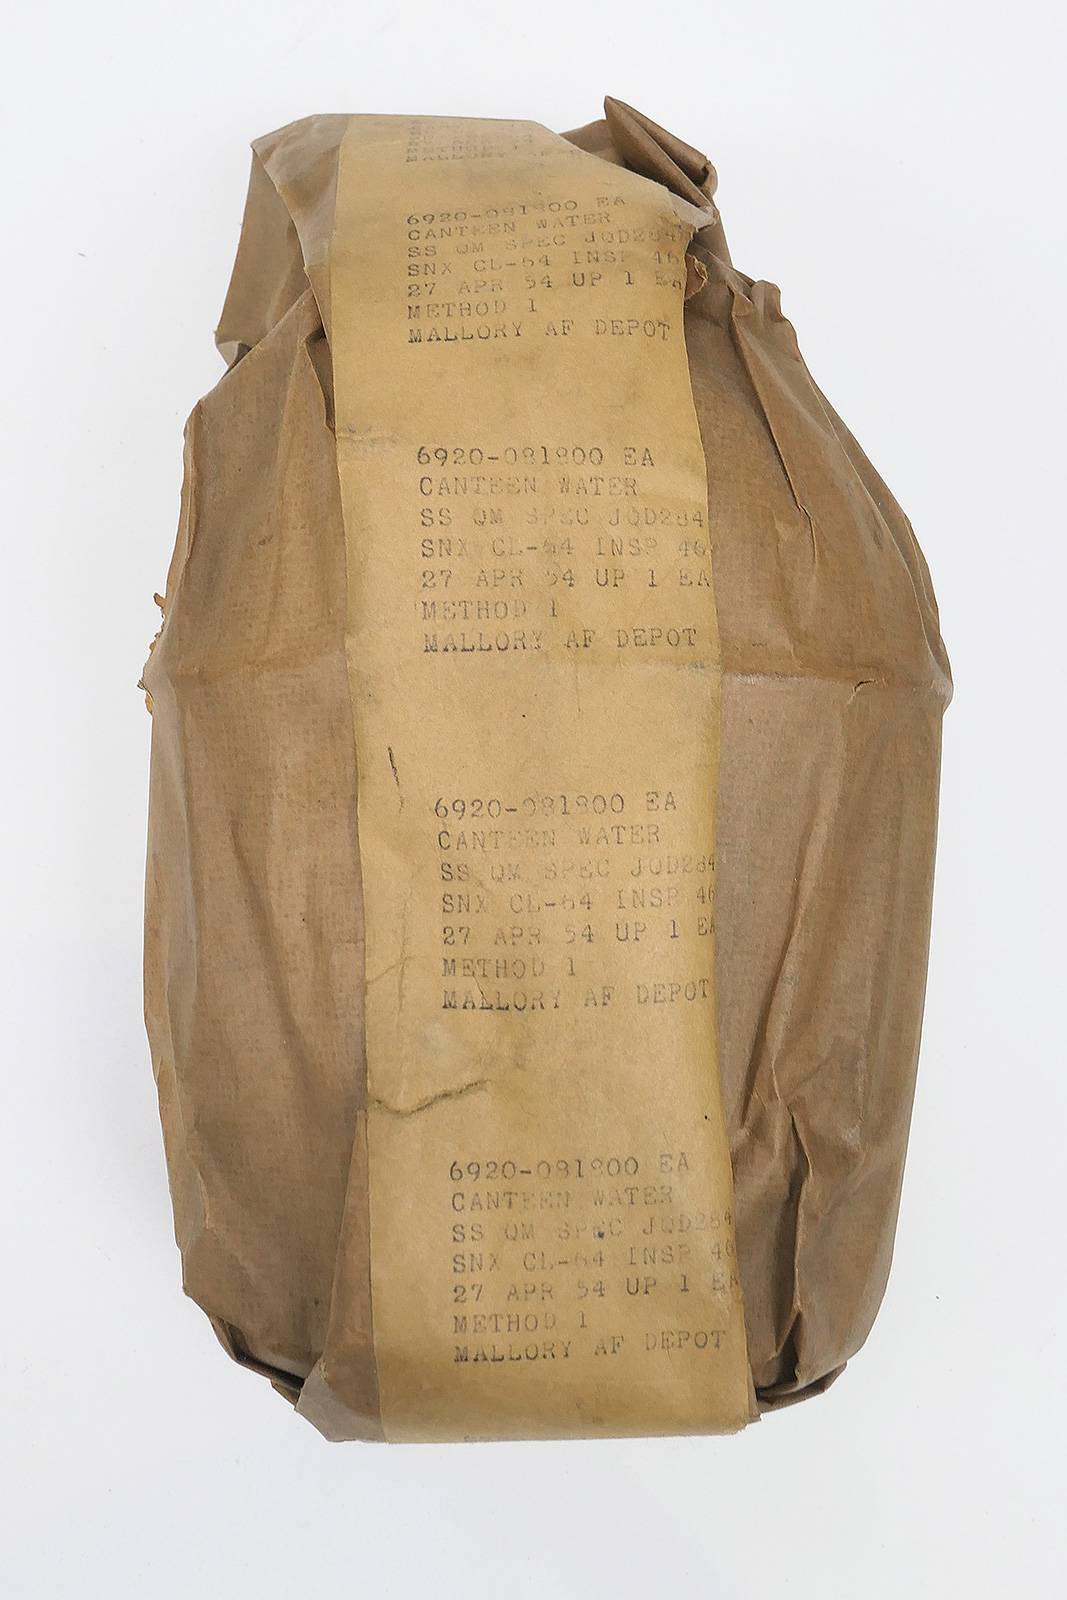 METHOD 1
MALLORY AF
6920-081800 EA
CANTEEN WATER
SS QM SPEC JQD284
SNX CL-64 INSP 46
27 APR 54 UP 1 EA
METHOD 1
MALLORY AF DEPOT
6920-081800 EA
CANTEEN WATER
SS QM SPEC JQD284
SNX CL-64 INSP 46
27 APR 54 UP 1 EA
METHOD 1
MALLORY AF DEPOT
6920-081800 EA
CANTEEN WATER
SS QM SPEC JQD284
SNX CL-64 INSP 46
27 APR 54 UP 1 EA
METHOD 1
MALLORY AF DEPOT
6920-081800 EA
CANTEEN WATER
SS QM SPEC JQD284
SNX CL-64 INSP 46
27 APR 54 UP 1 EA
METHOD 1
MALLORY AF DEPOT